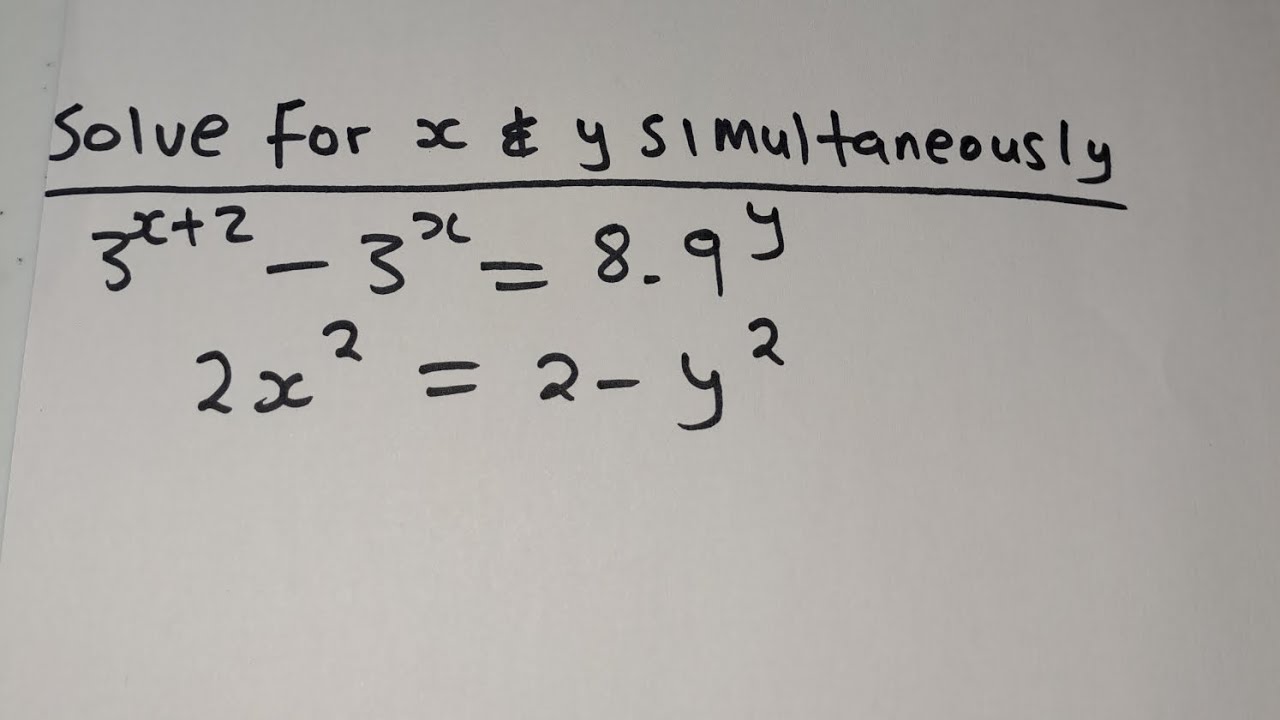 Solve for x & y simultaneously
3^{x+2} - 3^x = 8.9^y
2x^2 = 2 - y^2